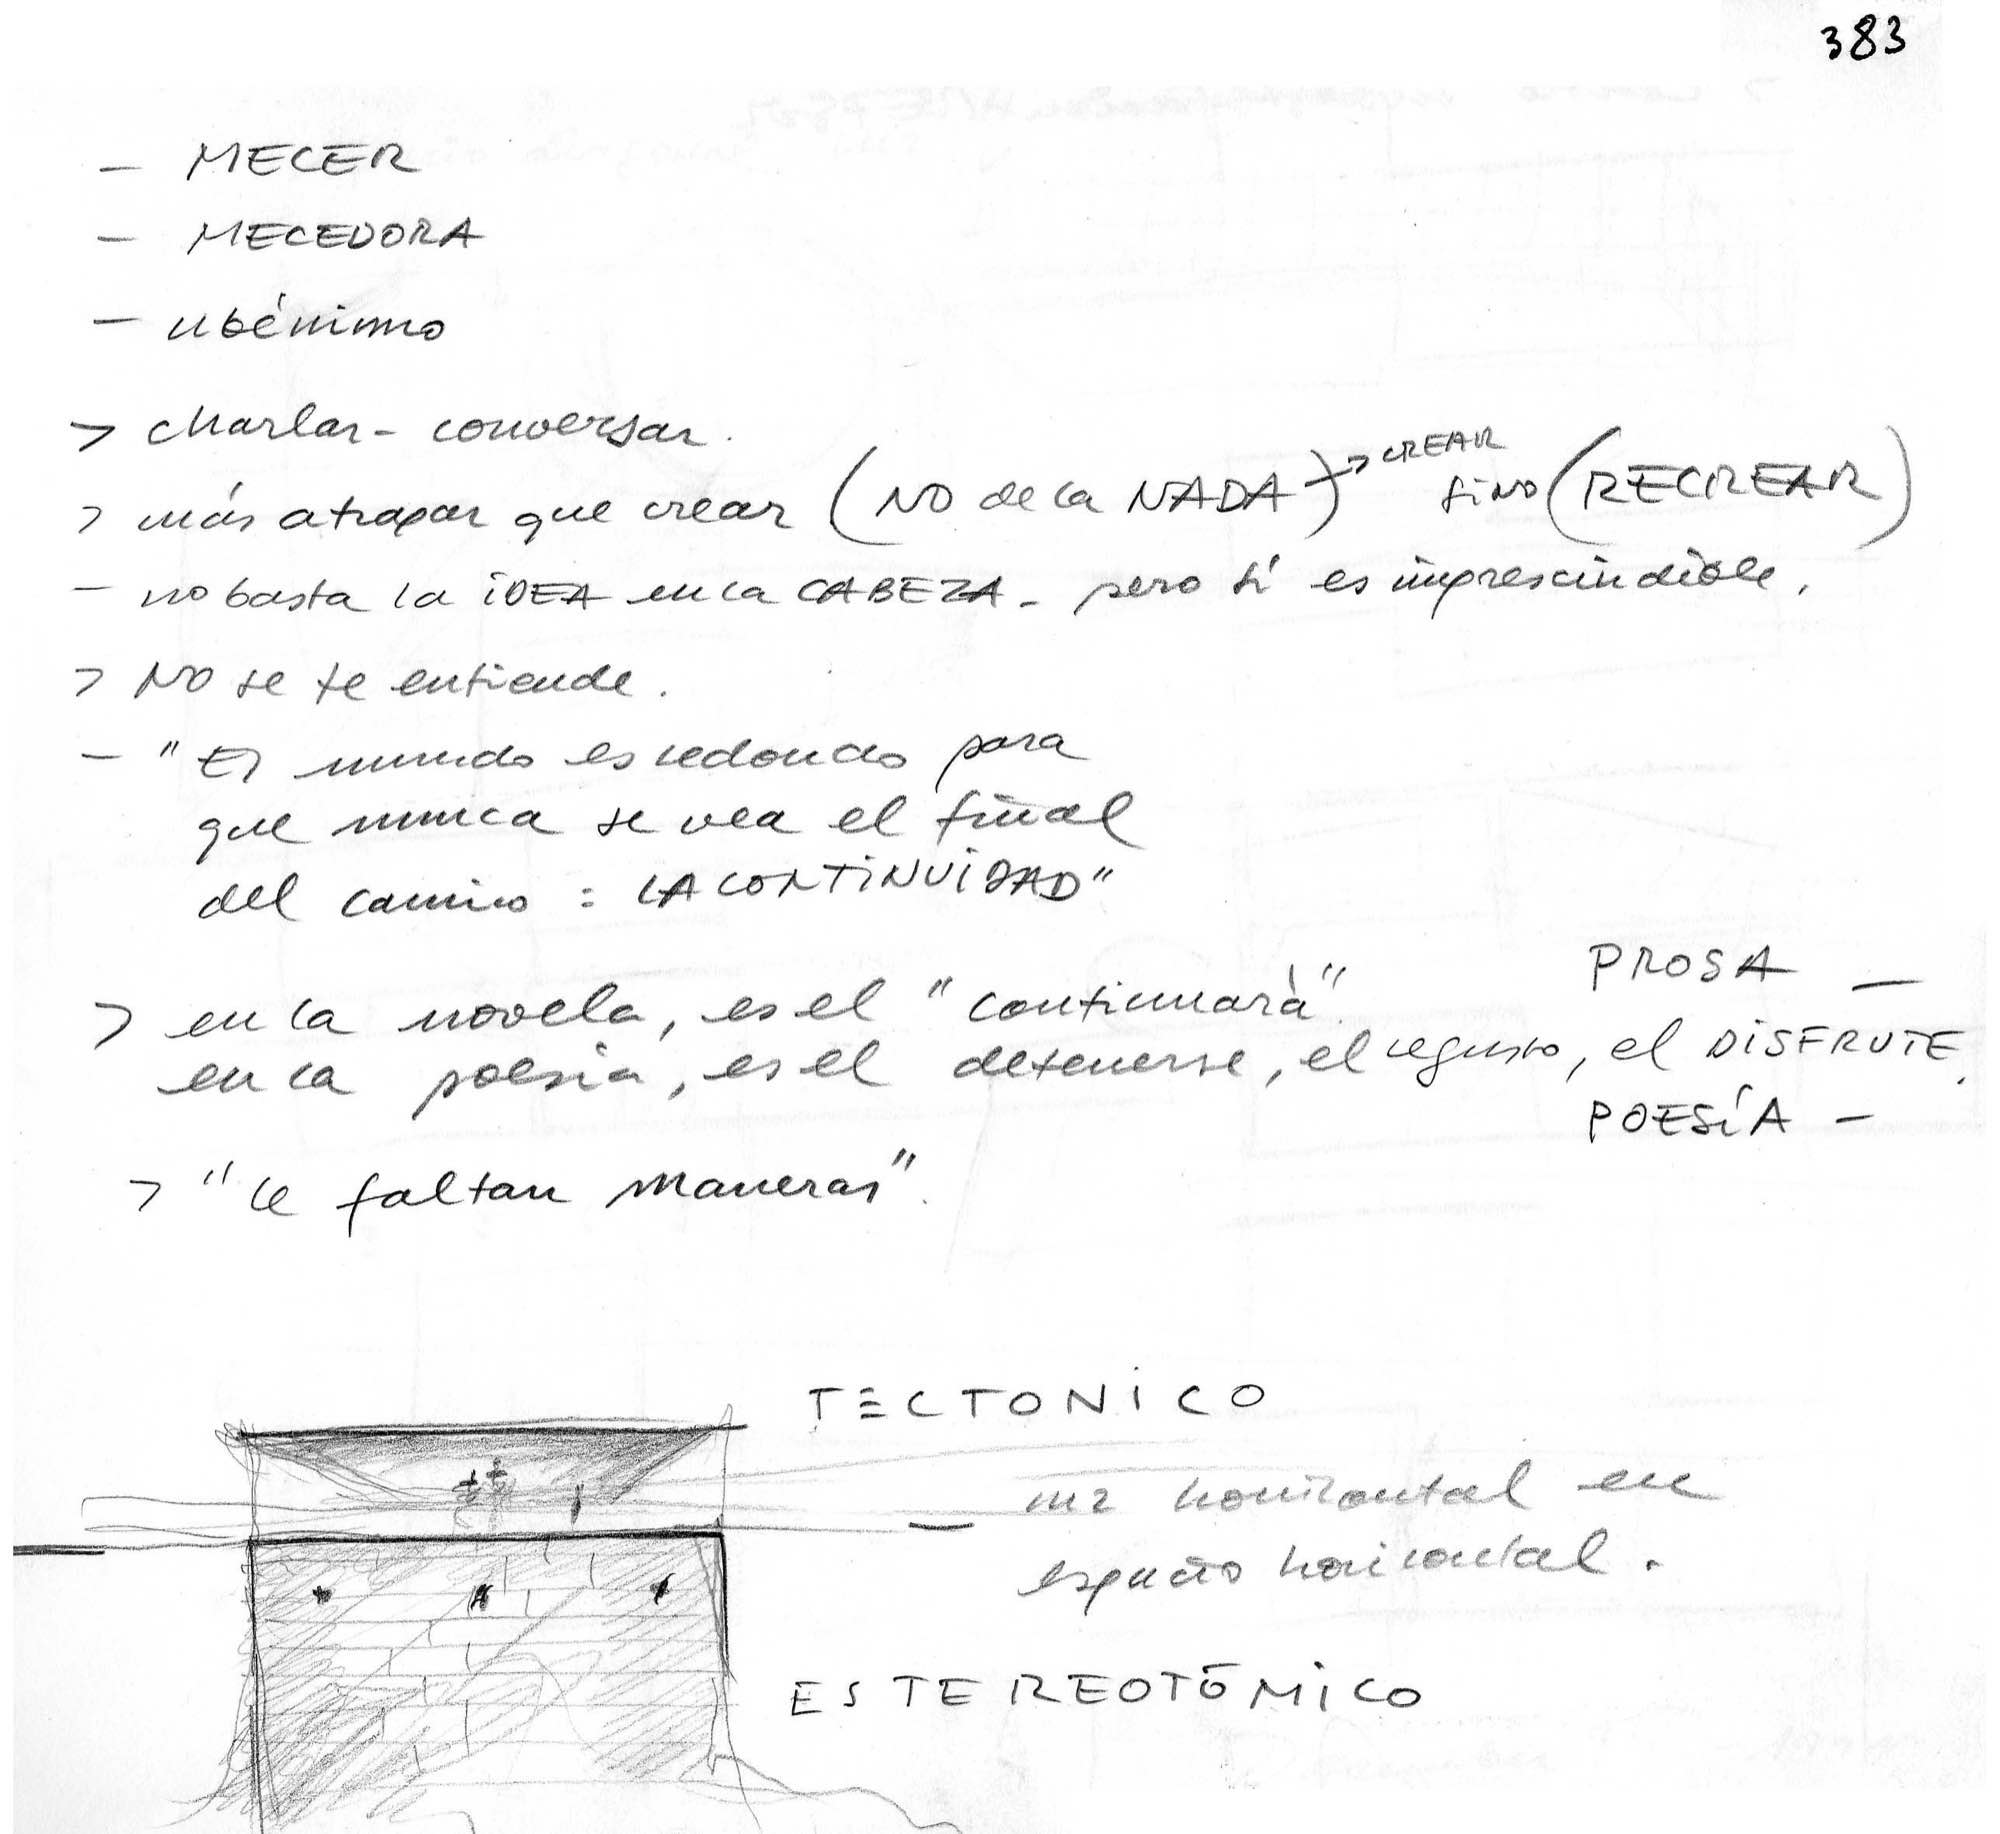 383
- MECER
- MECEDORA
- ubérrimo
> charlar - conversar.
> más atrapar que crear (NO de la NADA) → CREAR sino (RECREAR)
- no basta la iDEA en la CABEZA - pero sí es imprescindible.
> NO se te entiende.
- "El mundo es redondo para
que nunca se vea el final
del camino : LA CONTiNUiDAD"
PROSA -
> en la novela, es el "continuará"
en la poesía, es el detenerse, el regusto, el DiSFRUTE.
POESíA -
> "le faltan maneras".
TECTONiCO
luz horizontal en
espacio horizontal.
ESTEREOTÓMiCO